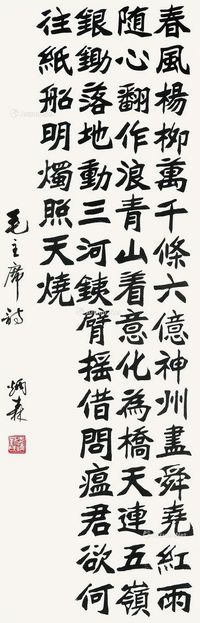 春風楊柳萬千條六億神州盡舜堯紅雨
随心翻作浪青山着意化為橋天連五嶺
銀鋤落地動三河銕臂摇借問瘟君欲何
往紙船明燭照天燒
毛主席詩 炳森